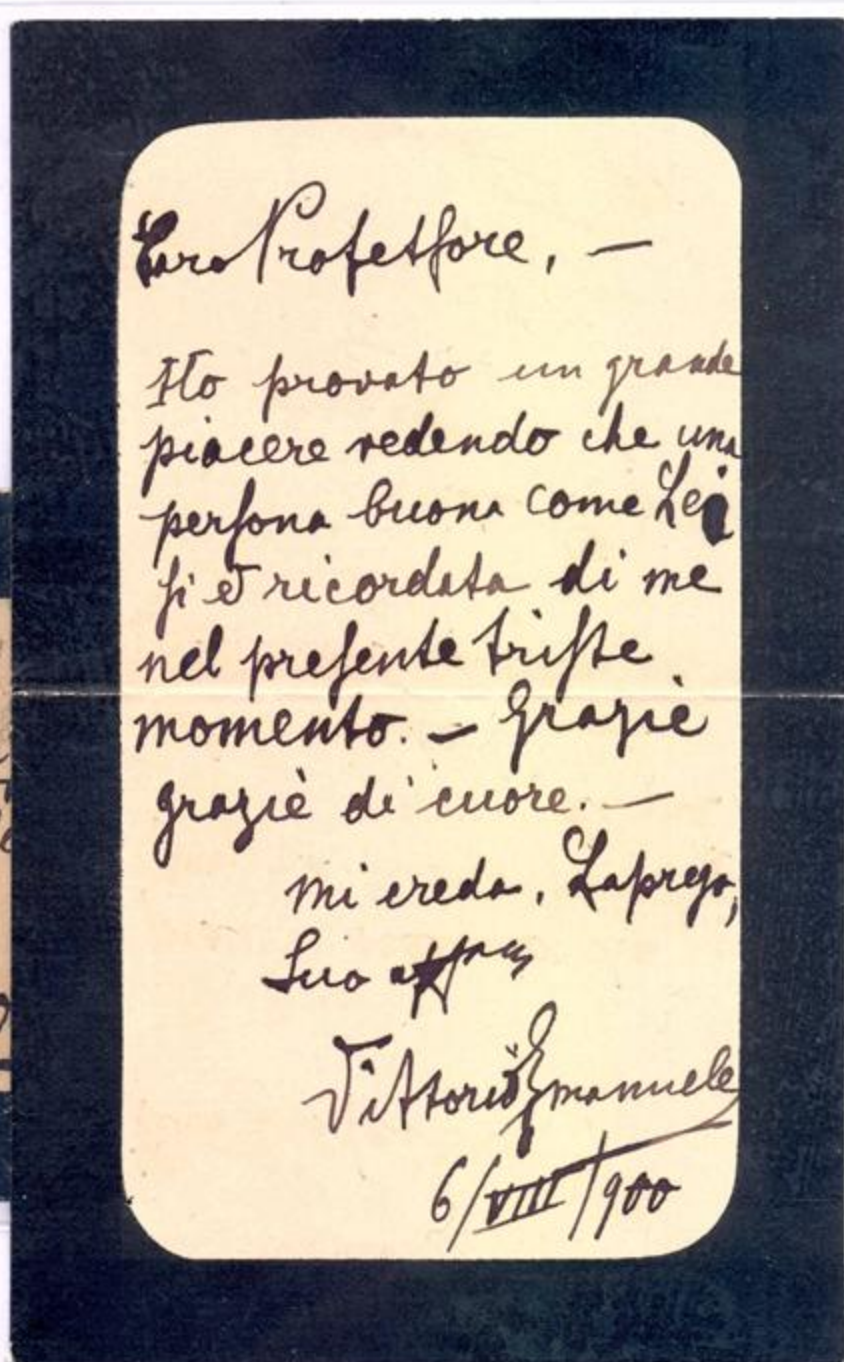 Caro Professore, —
Ho provato un grande
piacere vedendo che una
persona buona come Lei
si è ricordata di me
nel presente triste
momento. — Grazie
grazie di cuore. —
Mi creda, La prego,
Suo aff.mo
Vittorio Emanuele
6/VIII/900